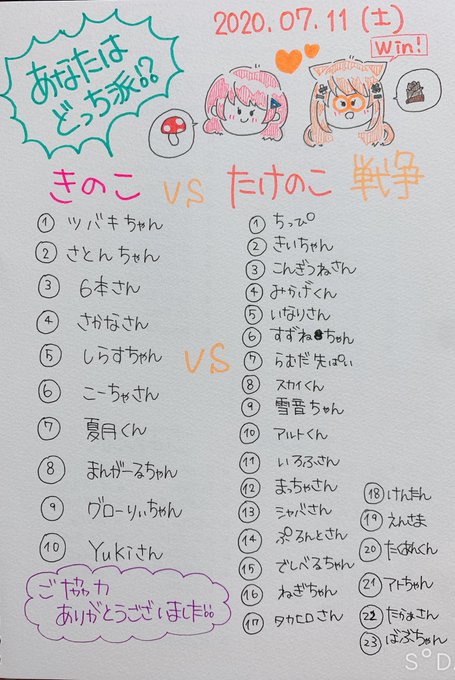 2020.07.11(土)
あなたは
どっち派!?
Win!
きのこ VS たけのこ 戦争
① ツバキちゃん
② さとんちゃん
③ 6本さん
④ さかなさん
⑤ しらすちゃん
⑥ こーちゃさん
⑦ 夏月くん
⑧ まんがーるちゃん
⑨ グローりぃちゃん
⑩ Yukiさん
VS
① ちっぴ°
② きいちゃん
③ こんぎつねさん
④ みかげくん
⑤ いなりさん
⑥ すずねちゃん
⑦ らむだ先ぱい
⑧ スカイくん
⑨ 雪音ちゃん
⑩ アルトくん
⑪ いろふさん
⑫ まっちゃさん
⑬ シャバさん
⑭ ぷろんとさん
⑮ でしべるちゃん
⑯ ねぎちゃん
⑰ タカヒロさん
⑱ けんたん
⑲ えんさま
⑳ たくあんくん
㉑ アトちゃん
㉒ たかぁさん
㉓ ばぶちゃん
ご協力
ありがとうございました!!